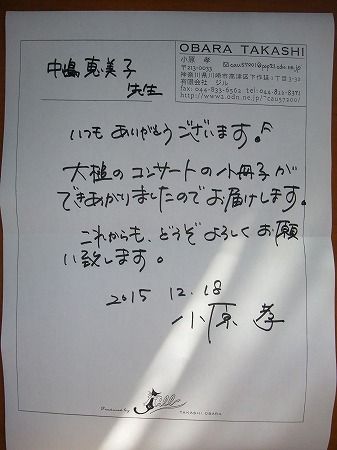 OBARA TAKASHI
小原 孝
〒213-0033
神奈川県川崎市高津区下作延1丁目3-30
有限会社 ジル
fax:044-833-6562 tel:044-822-8371
http://www2.odn.ne.jp/~cau57200/
中嶋恵美子
先生
いつもありがとうございます。
大槌のコンサートの小冊子が
できあがりましたのでお届けします。
これからも、どうぞよろしくお願
い致します。
2015 12.18
小原 孝
Produced by Jill
TAKASHI OBARA